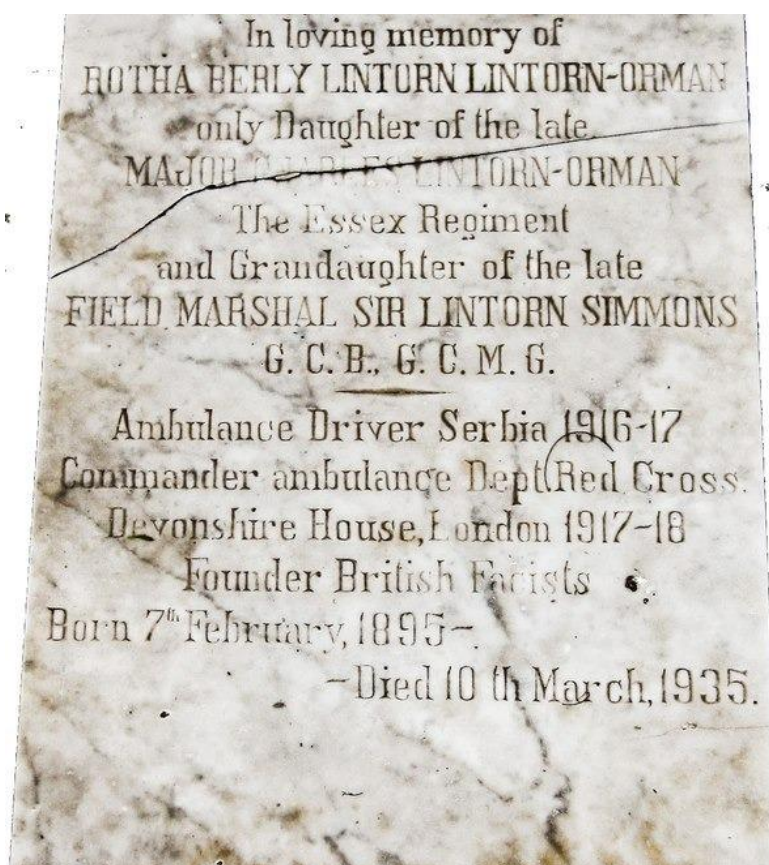 In loving memory of
ROTHA BERLY LINTORN LINTORN-ORMAN
only Daughter of the late
MAJOR CHARLES LINTORN-ORMAN
The Essex Regiment
and Grandaughter of the late
FIELD MARSHAL SIR LINTORN SIMMONS
G. C. B., G. C. M. G.
Ambulance Driver Serbia 1916-17
Commander ambulance Dept Red Cross.
Devonshire House, London 1917-18
Founder British Facists
Born 7th February, 1895-
-Died 10 th March, 1935.